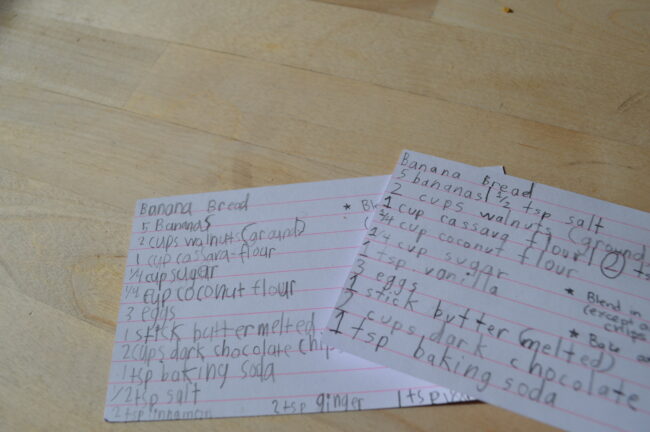 Banana Bread
5 Bananas
2 cups walnuts (ground)
1 cup cassava flour
1/4 cup sugar
1/4 cup coconut flour
3 eggs
1 stick butter melted
2 cups dark chocolate chips
1 tsp baking soda
1/2 tsp salt
2 tsp cinnamon 2 tsp ginger 1 tsp
Banana Bread
5 bananas 1/2 tsp salt
2 cups walnuts (ground
1 cup cassava flour
1/4 cup coconut flour
1/4 cup sugar
1 tsp vanilla
3 eggs * Blend in
1 stick butter (melted)
2 cups dark chocolate
1 tsp baking soda